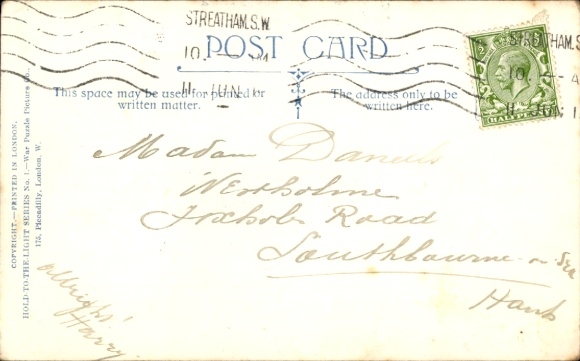 STREATHAM. S.W.
10.
11 JUN
POST CARD
This space may be used for printed or
written matter.
The address only to be
written here.
STREATHAM. S.
10
11 JUN. 1
HALFPENNY
COPYRIGHT.—PRINTED IN LONDON.
HOLD-TO-THE-LIGHT SERIES No. 1.—War Puzzle Picture Co.
175, Piccadilly, London, W.
Madam Daniells
Foxholes Road
Southbourne on Sea
Hants
Allright!
Harry.